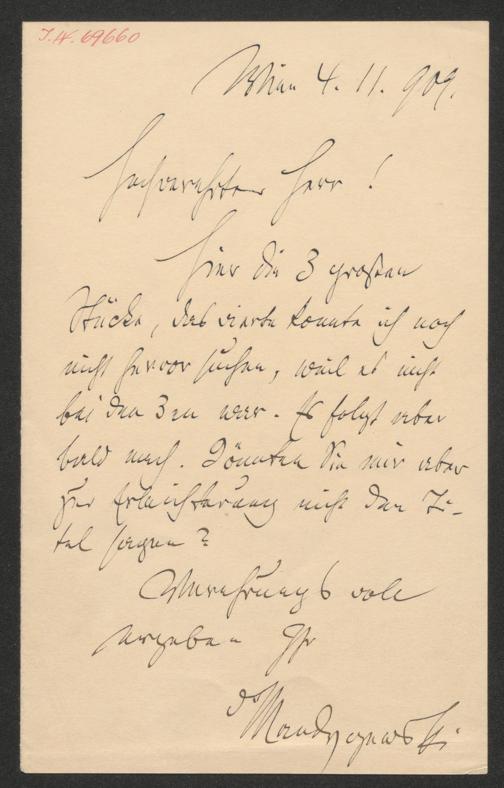 I.N. 69660
Wien 4. 11. 909.
Hochverehrter Herr!
Hier die 3 großen
Stücke, das vierte konnte ich noch
nicht hervor suchen, weil es nicht
bei den 3en war. Es folgt aber
bald nach. Könnten Sie mir aber
zur Erleichterung nicht den Ti-
tel sagen?
Verehrungsvoll
ergeben Ihr
Dr Mandyczewski.